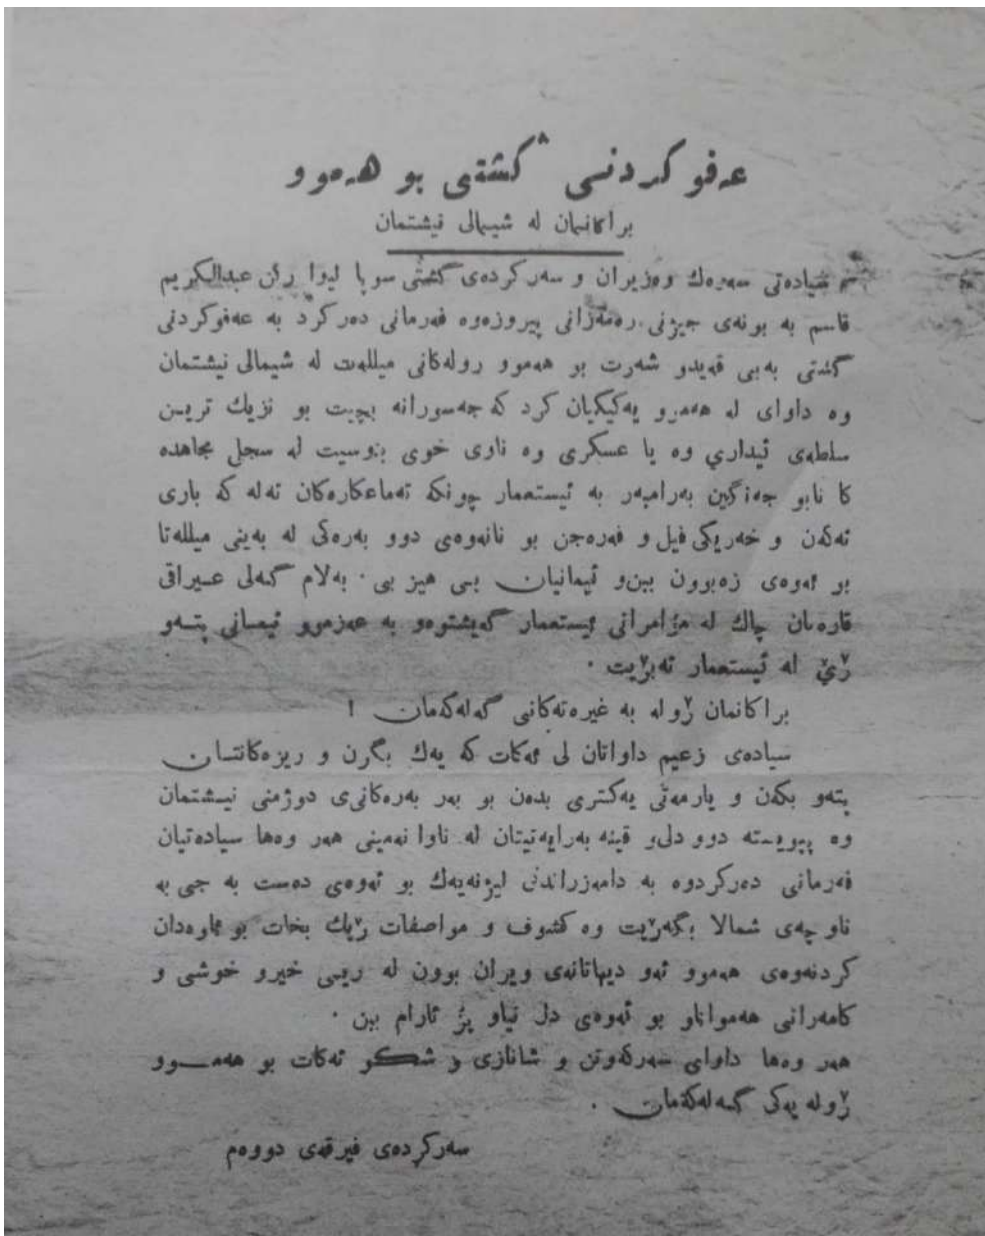 عەفو كردنی گشتی بو هەموو
براكانمان لە شیمالی نیشتمان
سیادەتی سەرەك وەزیران و سەركردەی گشتی سوپا لیوا ركن عبدالكریم
قاسم بە بونەی جیژنی رەمەزانی پیروزەوە فەرمانی دەركرد بە عەفوكردنی
گشتی بەبی قەیدو شەرت بو هەموو رولەكانی میللەت لە شیمالی نیشتمان
وە داوای لە هەموو یەكیكیان كرد كە جەسورانە بچیت بو نزیك تریـن
سلطەی ئیداري وە یا عسكری وە ناوی خوی بنوسیت لە سجلی مجاهدە
كا نابو جەنگین بەرامبەر بە ئیستعمار چونكە تەماعكارەكان تەلە كە بازی
ئەكەن و خەریكی فیل و فەرەجن بو نانەوەی دوو بەرەكی لە بەینی میللەتا
بو ئەوەی زەبوون ببن و ئیمانیان بـی هیز بی . بەلام گـەلی عـیراقی
قارەمان چاك لە مۆامرانی ئیستعمار گەیشتوەو بە عەزموو ئیمسانی پتـەو
ڕێ لە ئیستعمار ئەبڕیت .
براكانمان ڕولە بە غیرەتەكانی گەلەكەمان !
سیادەی زعیم داواتان لی ئەكات كە یەك بگرن و ریزەكانتـان
پتەو بكەن و یارمەتی یەكتری بدەن بو بەر بەرەكانی دوژمنی نیـشتمان
وە پیویـستە دوو دلی و قینە بەرایەتیتان لە ناوا نەمینی هەر وەها سیادەتیان
فەرمانی دەركردوە بە دامەزراندنی لیژنەیەك بو ئەوەی دەست بە جی بە
ناوچەی شمالا بگەڕیت وە كشوف و مواصفات ڕیك بخات بو ئاوەدان
كردنەوەی هەموو ئەو دیهاتانەی ویران بوون لە ریـی خیرو خوشی و
كامەرانی هەمواناو بو ئەوەی دل نیاو پڕ ئارام بن .
هەر وەها داوای سەركەوتن و شانازی و شـكـو ئەكات بو هەمــوو
ڕولە یەكی گـەلەكەمان .
سەركردەی فیرقەی دووەم